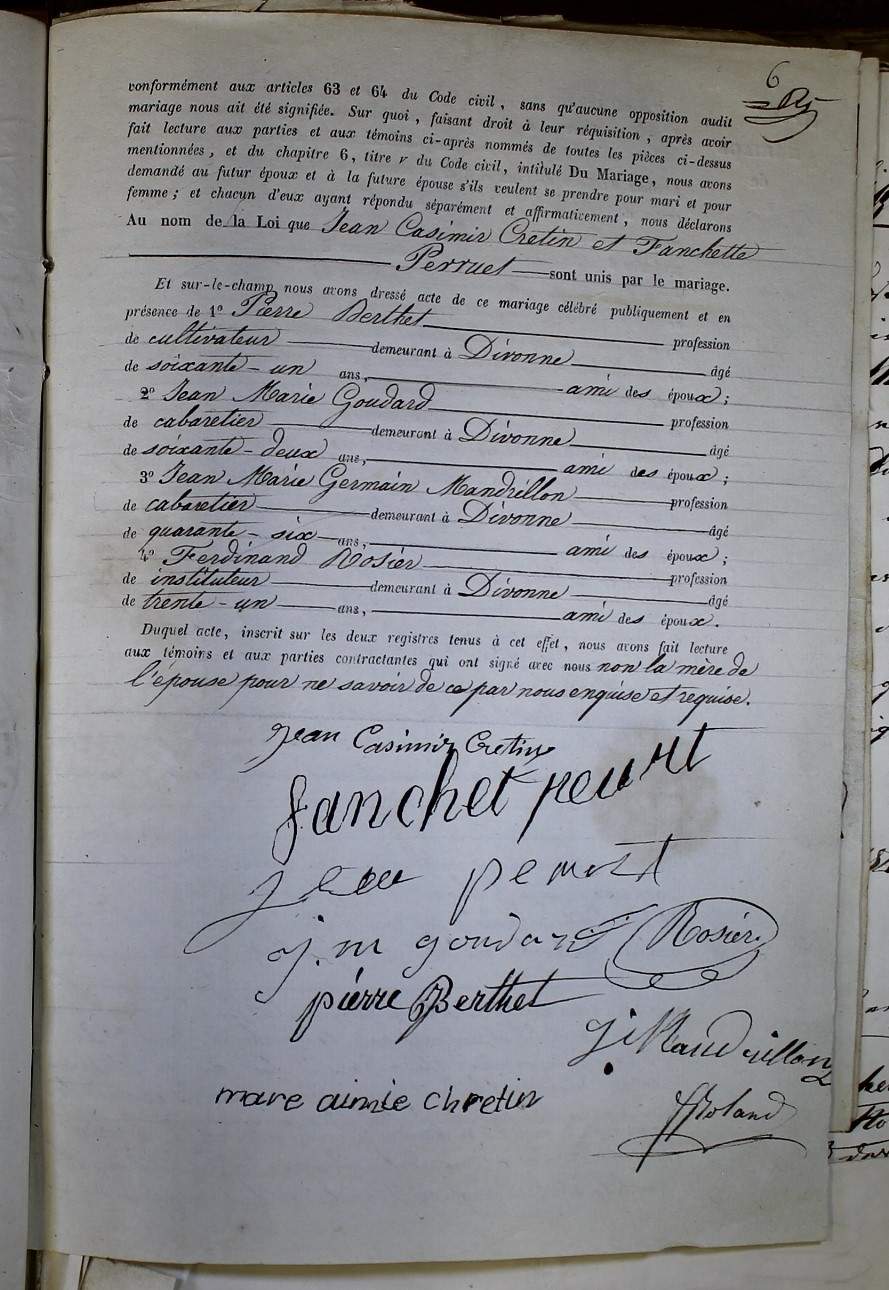 6
conformément aux articles 63 et 64 du Code civil, sans qu'aucune opposition audit
mariage nous ait été signifiée. Sur quoi, faisant droit à leur réquisition, après avoir
fait lecture aux parties et aux témoins ci-après nommés de toutes les pièces ci-dessus
mentionnées, et du chapitre 6, titre v du Code civil, intitulé Du Mariage, nous avons
demandé au futur époux et à la future épouse s'ils veulent se prendre pour mari et pour
femme; et chacun d'eux ayant répondu séparément et affirmativement, nous déclarons
Au nom de la Loi que Jean Casimir Cretin et Fanchette
Perruet sont unis par le mariage.
Et sur-le-champ nous avons dressé acte de ce mariage célébré publiquement et en
présence de 1º Pierre Berthet profession
de cultivateur demeurant à Divonne âgé
de soixante-un ans, ami des époux;
2º Jean Marie Goudard profession
de cabaretier demeurant à Divonne âgé
de soixante-deux ans, ami des époux;
3º Jean Marie Germain Mandrillon profession
de cabaretier demeurant à Divonne âgé
de quarante-six ans, ami des époux;
4º Ferdinand Rosier profession
de instituteur demeurant à Divonne âgé
de trente-un ans, ami des époux.
Duquel acte, inscrit sur les deux registres tenus à cet effet, nous avons fait lecture
aux témoins et aux parties contractantes qui ont signé avec nous non la mère de
l'épouse pour ne savoir de ce par nous enquise et requise.
Jean Casimir Cretin
fanchet
j.m goudard Rosier
pierre Berthet
Mandrillon
mare aimée chretin
Roland